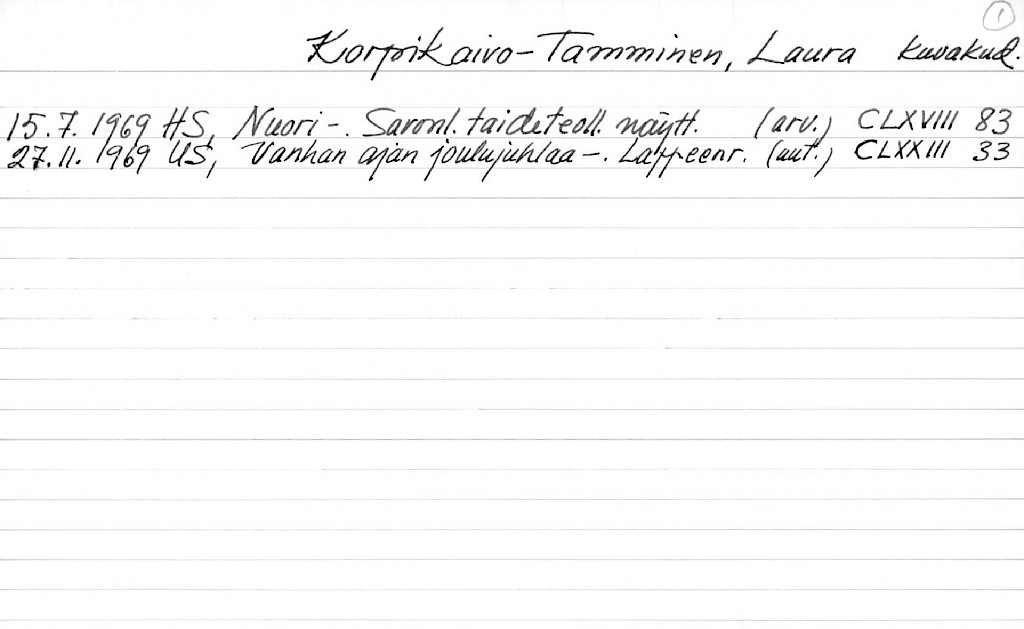 1
Korpikaivo-Tamminen, Laura kuvakud.
15.7.1969 HS, Nuori -. Savonl. taideteoll. näytt. (arv.) CLXVIII 83
27.11.1969 US, Vanhan ajan joulujuhlaa -. Lappeenr. (uut.) CLXXIII 33